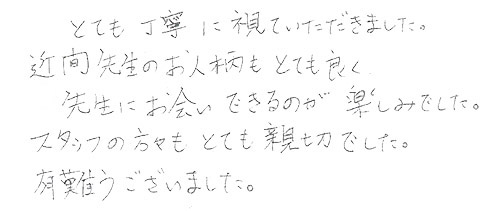 とても丁寧に視ていただきました。
近間先生のお人柄もとても良く
先生にお会いできるのが楽しみでした。
スタッフの方々もとても親切でした。
有難うございました。